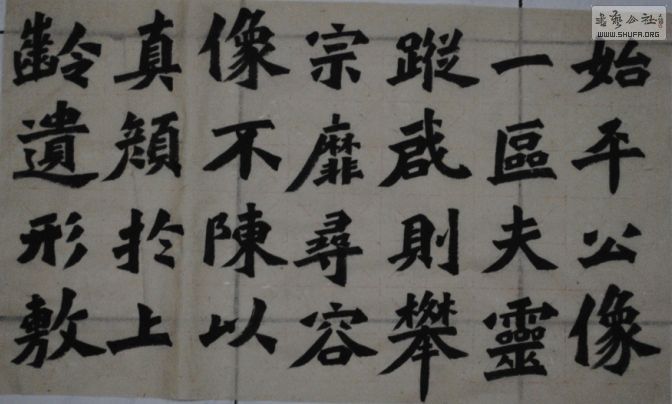 始平公像
一區夫靈
蹤啟則攀
宗靡尋容
像不陳以
真顏於上
齡遺形敷
书艺公社
WWW.SHUFA.ORG